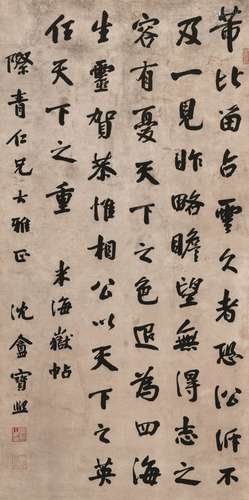 芾比留占雲久者恐訟訴不
及一見昨略瞻望無得志之
容有憂天下之色為四海
生靈賀恭惟相公以天下之英
任天下之重 米海嶽帖
際青仁兄大雅正 沈盦寶熙